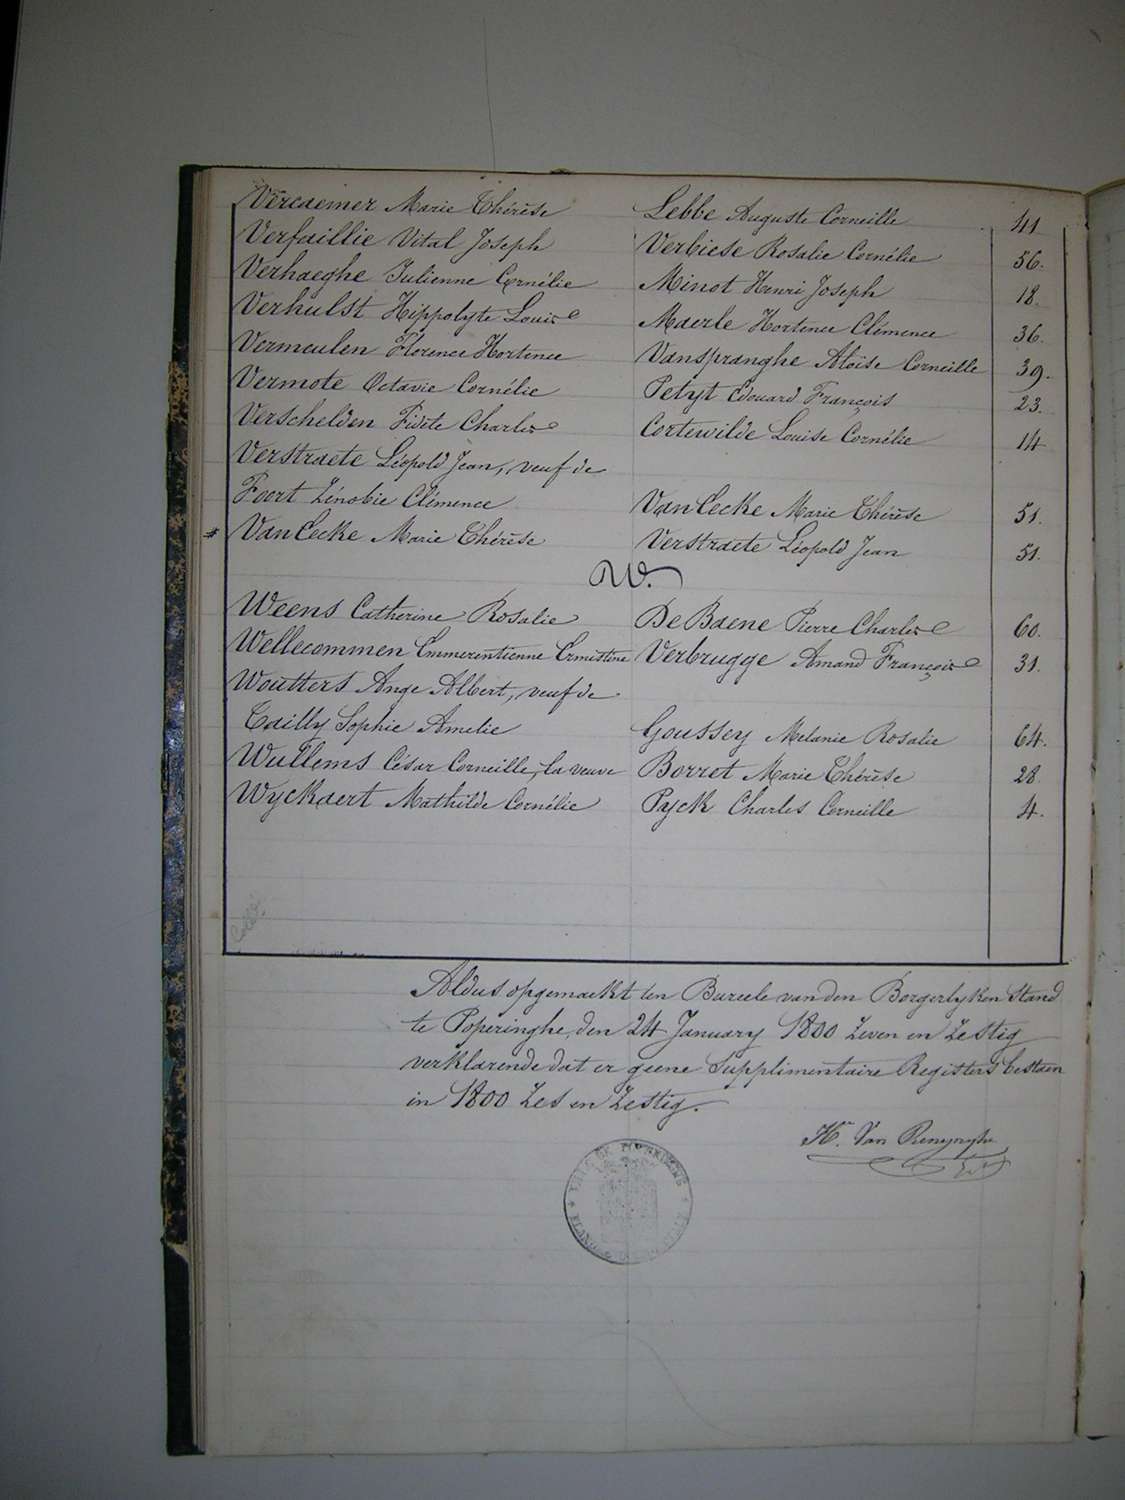 Vercaemer Marie Thérèse Lebbe Auguste Corneille 41
Verfaillie Vital Joseph Verbiese Rosalie Cornélie 56.
Verhaeghe Julienne Cornélie Minot Henri Joseph 18.
Verhulst Hippolyte Louis Maerle Hortence Clémence 36.
Vermeulen Florence Hortence Vanspranghe Aloïse Corneille 39.
Vermote Octavie Cornélie Petyt Edouard François 23.
Verschelden Fidèle Charles Cortewilde Louise Cornélie 14
Verstraete Léopold Jean, veuf de
Foort Zénobie Clémence VanCecke Marie Thérèse 51.
# VanCecke Marie Thérèse Verstraete Léopold Jean 51.
W.
Weens Catherine Rosalie De Baene Pierre Charles 60.
Wellecommen Emmerentienne Ermistine Verbrugge Amand François 31.
Woutters Ange Albert, veuf de
Tailly Sophie Amelie Goussey Melanie Rosalie 64.
Wullems César Corneille, la veuve Borret Marie Thérèse 28
Wyckaert Mathilde Cornélie Pyck Charles Corneille 4.
Aldus opgemaekt ten Bureele van den Borgerlyken Stand
te Poperinghe, den 24 January 1800 Zeven en Zestig
verklarende dat er geene Supplimentaire Registers bestaen
in 1800 Zes en Zestig.
H. Van Renynghe